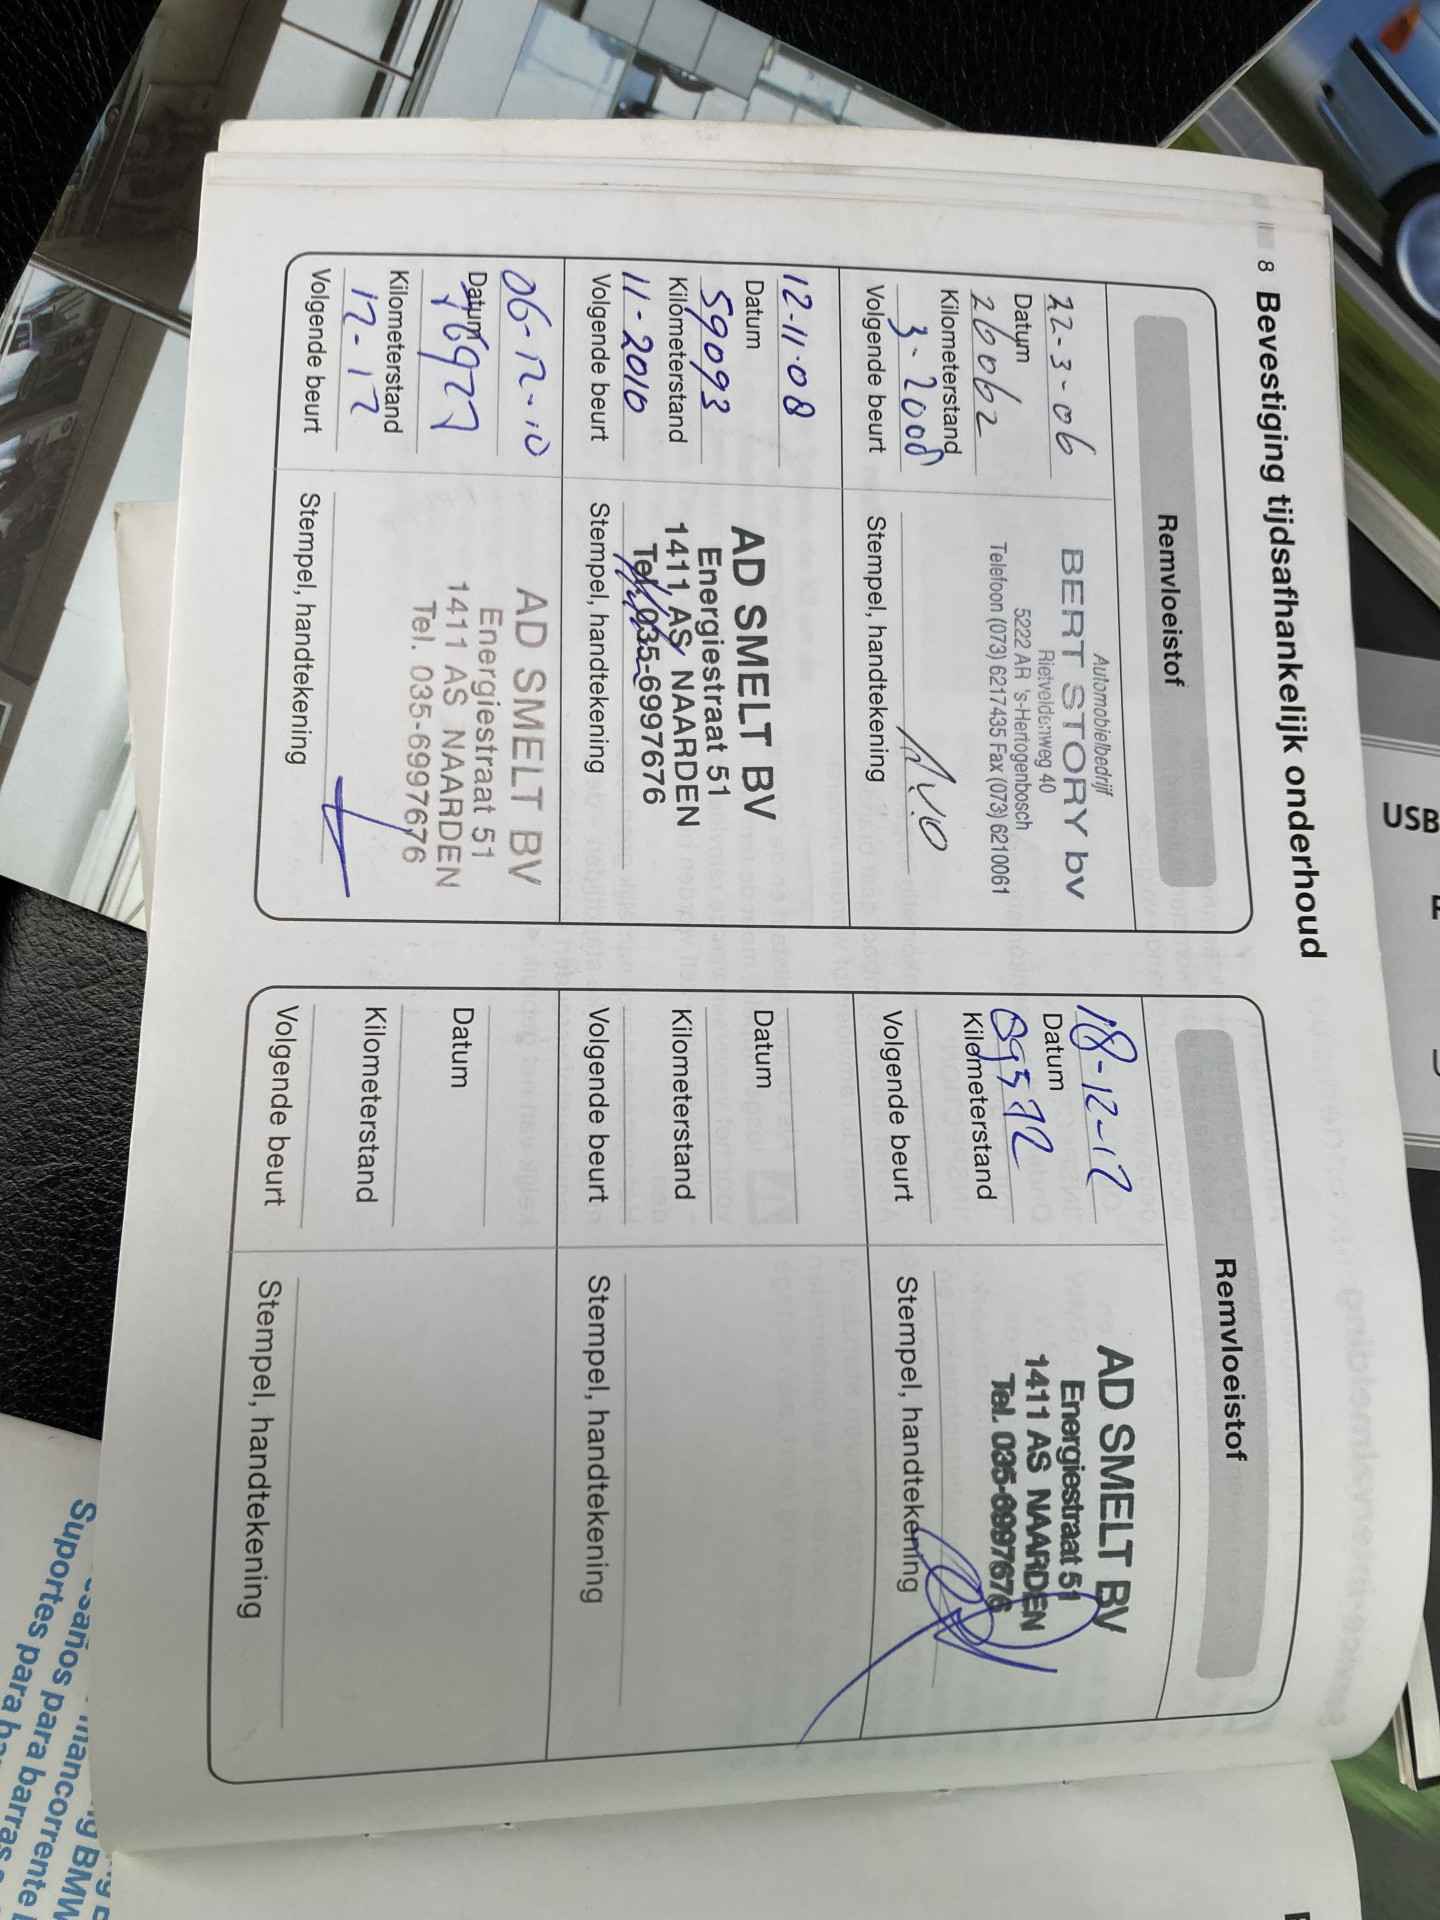 8 Bevestiging tijdsafhankelijk onderhoud
Remvloeistof
22-3-06
Datum
26062
Kilometerstand
3-2008
Volgende beurt
Automobielbedrijf
BERT STORY bv
Rietveldenweg 40
5222 AR 's-Hertogenbosch
Telefoon (073) 6217435 Fax (073) 6210061
Stempel, handtekening
12-11-08
Datum
59093
Kilometerstand
11-2010
Volgende beurt
AD SMELT BV
Energiestraat 51
1411 AS NAARDEN
Tel. 035-6997676
Stempel, handtekening
06-12-10
Datum
76927
Kilometerstand
12-12
Volgende beurt
AD SMELT BV
Energiestraat 51
1411 AS NAARDEN
Tel. 035-6997676
Stempel, handtekening
Remvloeistof
18-12-12
Datum
Kilometerstand
Volgende beurt
AD SMELT BV
Energiestraat 51
1411 AS NAARDEN
Tel. 035-6997676
Stempel, handtekening
Datum
Kilometerstand
Volgende beurt
Stempel, handtekening
Datum
Kilometerstand
Volgende beurt
Stempel, handtekening
USB
BMW
para barras
para mancorrente
Suportes para barras